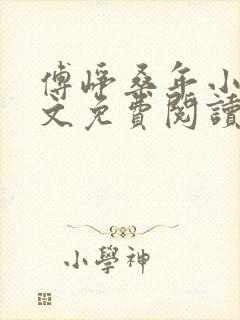 傅崢桑年小
文免費閱讀
小學神